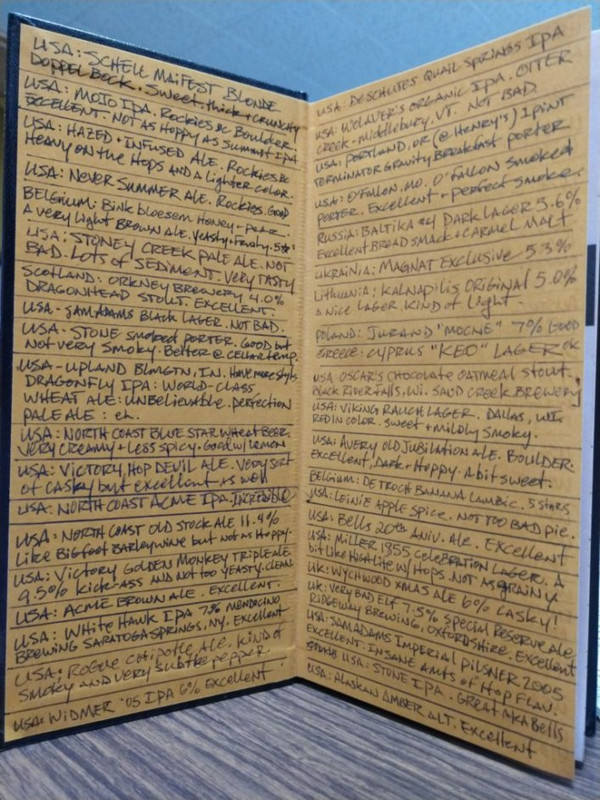 USA: SCHELL MAIFEST BLONDE
DOPPEL BOCK. Sweet, thick + crunchy
USA: MOJO IPA. Rockies Bc Boulder.
EXCELLENT. NOT AS HOPPY AS SUMMIT IPA
USA: HAZED + INFUSED ALE. ROCKIES Bc
HEAVY ON THE HOPS AND A LIGHTER COLOR.
USA: NEVER SUMMER ALE. ROCKIES. GOOD
BELGIUM: Bink bloesem Honey + pear.
A very light Brown Ale. Yeasty + Fruity.
USA: STONEY CREEK PALE ALE. NOT
BAD. LOTS OF SEDIMENT. VERY TASTY
SCOTLAND: ORKNEY BREWERY 4.0%
DRAGONHEAD STOUT. EXCELLENT.
USA- SAM ADAMS BLACK LAGER. NOT BAD.
USA- STONE SMOKED PORTER. GOOD but
Not very smoky. Better @ cellar temp.
USA- UPLAND BLMGTN, IN.
DRAGONFLY IPA: WORLD-CLASS
WHEAT ALE: UNBELIEVABLE. perfection
PALE ALE: eh.
USA: NORTH COAST BLUE STAR WHEAT BEER.
VERY CREAMY + LESS SPICY. GOOD w/ lemon
USA: VICTORY HOP DEVIL ALE. VERY SORT
OF CASKY but EXCELLENT AS WELL
USA: NORTH COAST ACME IPA. INCREDIBLE
USA: NORTH COAST OLD STOCK ALE 11.4%
LIKE BIGFOOT BARLEYWINE but NOT AS HOPPY.
USA: VICTORY GOLDEN MONKEY TRIPLE ALE.
9.5% KICK-ASS AND NOT TOO YEASTY. CLEAN
USA: ACME BROWN ALE. EXCELLENT.
USA: WHITE HAWK IPA 7% MENDOCINO
BREWING SARATOGA SPRINGS, NY. EXCELLENT
USA: ROGUE CHIPOTLE ALE. KIND OF
SMOKY AND VERY SUBTLE PEPPER.
USA: WIDMER '05 IPA 6% EXCELLENT
USA: DESCHUTES QUAIL SPRINGS IPA
USA: WOLAVER'S ORGANIC IPA. OTTER
CREEK - MIDDLEBURY, VT. NOT BAD
USA: PORTLAND, OR (@ HENRY'S) 1 PINT
TERMINATOR GRAVITY BREAKFAST PORTER
USA: O'FALLON, MO. O'FALLON SMOKED
PORTER. EXCELLENT + PERFECT SMOKE.
RUSSIA: BALTIKA #4 DARK LAGER 5.6%
EXCELLENT BREAD SMACK + CARMEL MALT
UKRAINIA: MAGNAT EXCLUSIVE 5.3%
LITHUANIA: KALNAPILIS ORIGINAL 5.0%
A NICE LAGER. KIND OF LIGHT.
POLAND: JURAND "MOCNE" 7% GOOD
GREECE: CYPRUS "KEO" LAGER OK
USA OSCAR'S CHOCOLATE OATMEAL STOUT.
BLACK RIVER FALLS, WI. SAND CREEK BREWERY
USA: VIKING RAUCH LAGER. DALLAS, WI.
RED IN COLOR. SWEET + MILDLY SMOKY.
USA: AVERY OLD JUBILATION ALE. BOULDER.
EXCELLENT, DARK + HOPPY. A bit SWEET.
BELGIUM: DETROCH BANANA LAMBIC. 5 STARS
USA: LEINIE APPLE SPICE. NOT TOO BAD pie.
USA: BELLS 20th ANIV. ALE. EXCELLENT
USA: MILLER 1855 CELEBRATION LAGER. A
bit LIKE HIGH LIFE w/ HOPS. NOT AS GRAINY
UK: WYCHWOOD XMAS ALE 6% CASKY!
UK: VERY BAD ELF 7.5% SPECIAL RESERVE ALE
RIDGEWAY BREWING, OXFORDSHIRE. EXCELLENT
USA: SAM ADAMS IMPERIAL PILSNER 2005
EXCELLENT. INSANE AMTS OF HOP FLAV.
USA: STONE IPA. GREAT AKA Bells
USA: ALASKAN AMBER ALT. EXCELLENT